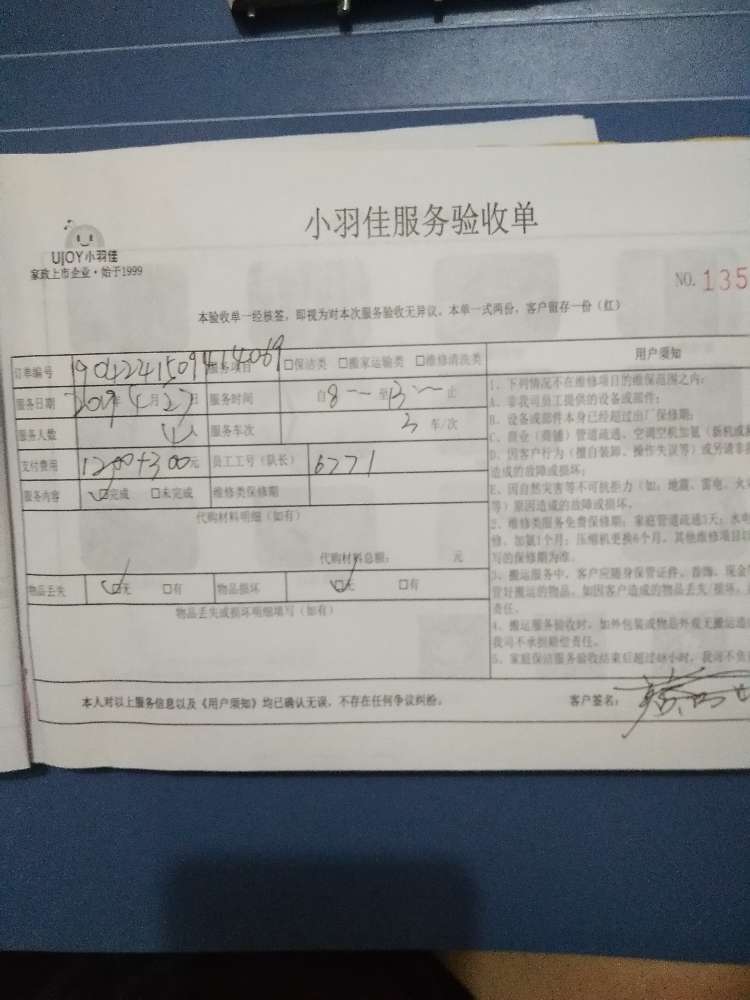 小羽佳服务验收单
UJOY小羽佳
家政上市企业·始于1999
NO.135
本验收单一经核签，即视为对本次服务验收无异议。本单一式两份，客户留存一份（红）
订单编号 19042241509414069 服务项目 □保洁类 □搬家运输类 □维修清洗类
服务日期 2019年4月27日 服务时间 自8 至13 止
服务人数 人 服务车次 3 车/次
支付费用 1200+300元 员工工号（队长） 6271
服务内容 □完成 □未完成 维修类保修期
代购材料明细（如有）
代购材料总额： 元
物品丢失 □无 □有 物品损坏 □无 □有
物品丢失或损坏明细填写（如有）
用户须知
1、下列情况不在维修项目的维保范围之内：
A、非我司员工提供的设备或部件；
B、设备或部件本身已经超过出厂保修期；
C、商业（商铺）管道疏通、空调空机加氟（新机或
D、因客户行为（擅自装卸、操作失误等）或另请非
造成的故障或损坏；
E、因自然灾害等不可抗拒力（如：地震、雷电、火
等）原因造成的故障或损坏。
2、维修类服务免费保修期：家庭管道疏通3天；水电
修、加氟1个月；压缩机更换6个月。其他维修项目以
写的保修期为准。
3、搬运服务中，客户应随身保管证件、首饰、现金
管好搬运的物品。如因客户造成的物品丢失/损坏，
责任。
4、搬运服务验收时，如外包装或物品外观无搬运造
我司不承担赔偿责任。
5、家庭保洁服务验收结束后超过48小时，我司不负
本人对以上服务信息以及《用户须知》均已确认无误，不存在任何争议纠纷。 客户签名：